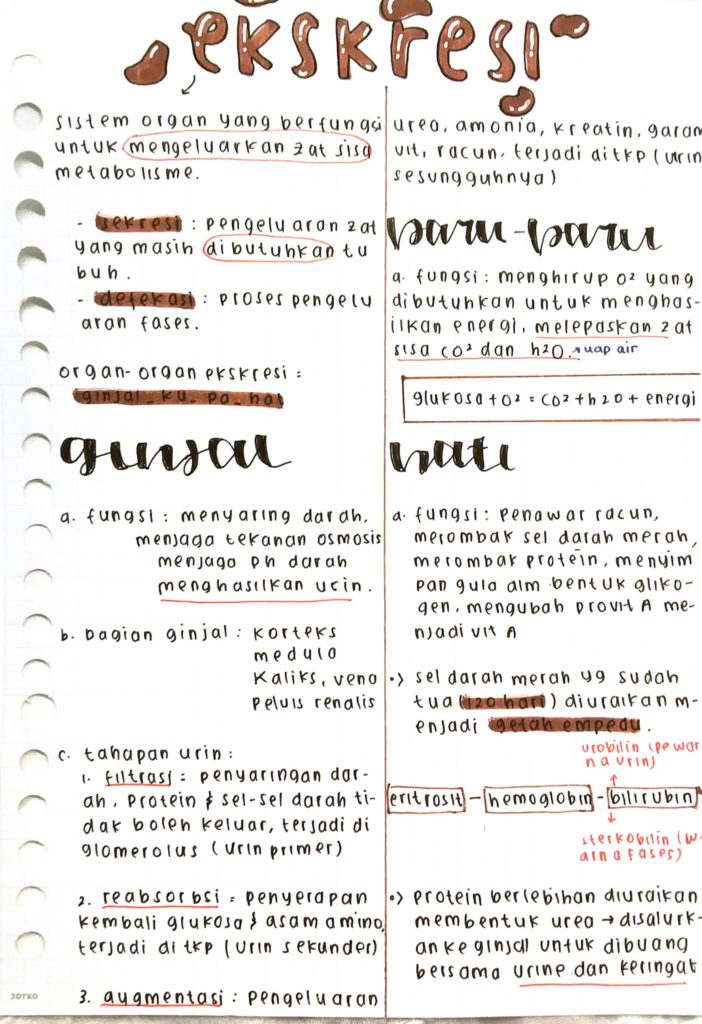 ekskresi
sistem organ yang berfungsi
untuk mengeluarkan zat sisa
metabolisme.
- sekresi : pengeluaran zat
yang masih dibutuhkan tu
buh.
- defekasi : proses pengelu
aran fases.
organ-organ ekskresi :
ginjal_ku_pa_hat
ginjal
a. fungsi : menyaring darah,
menjaga tekanan osmosis
menjaga ph darah
menghasilkan urin.
b. bagian ginjal : korteks
medula
kaliks, vena
pelvis renalis
c. tahapan urin :
1. filtrasi : penyaringan dar-
ah, protein & sel-sel darah ti-
dak boleh keluar, terjadi di
glomerolus (urin primer)
2. reabsorbsi = penyerapan
kembali glukosa & asam amino,
terjadi di tkp (urin sekunder)
3. augmentasi : pengeluaran
JOYKO
urea, amonia, kreatin, garam
vit, racun. terjadi di tkp (urin
sesungguhnya)
paru-paru
a. fungsi : menghirup O² yang
dibutuhkan untuk menghas-
ilkan energi, melepaskan zat
sisa CO² dan h2O. → uap air
glukosa + O² = CO² + h2O + energi
hati
a. fungsi : penawar racun,
merombak sel darah merah,
merombak protein, menyim
pan gula dlm bentuk gliko-
gen, mengubah provit A me-
njadi vit A
•> sel darah merah yg sudah
tua (120 hari) diuraikan m-
enjadi getah empedu.
urobilin (pewar
na urin)
eritrosit - hemoglobin - bilirubin
sterkobilin (w-
arna fases)
•> protein berlebihan diuraikan
membentuk urea → disalurk-
an ke ginjal untuk dibuang
bersama urine dan keringat